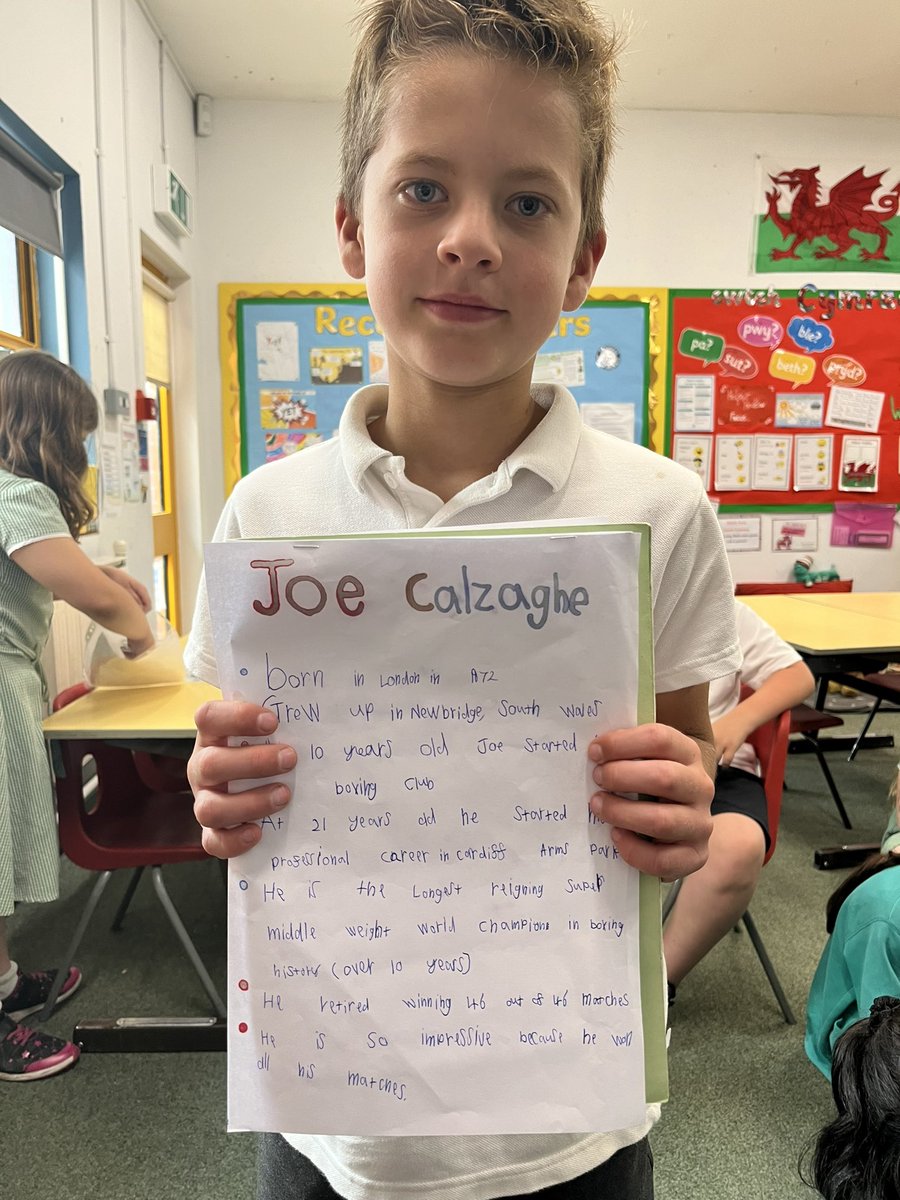 Rec
ers
Cymra
pa?
pwy?
ble?
sut?
beth?
pryd?
Joe Calzaghe
born in London in
Grew up in Newbridge, South Wales
10 years old Joe Started
boxing Club
At 21 years old he Started
professional career in cardiff Arms Park
He is the Longest reigning Super
middle weight world champions in boxing
history (over 10 years)
He retired winning 46 out of 46 matches
He is so impressive because he won
all his matches.